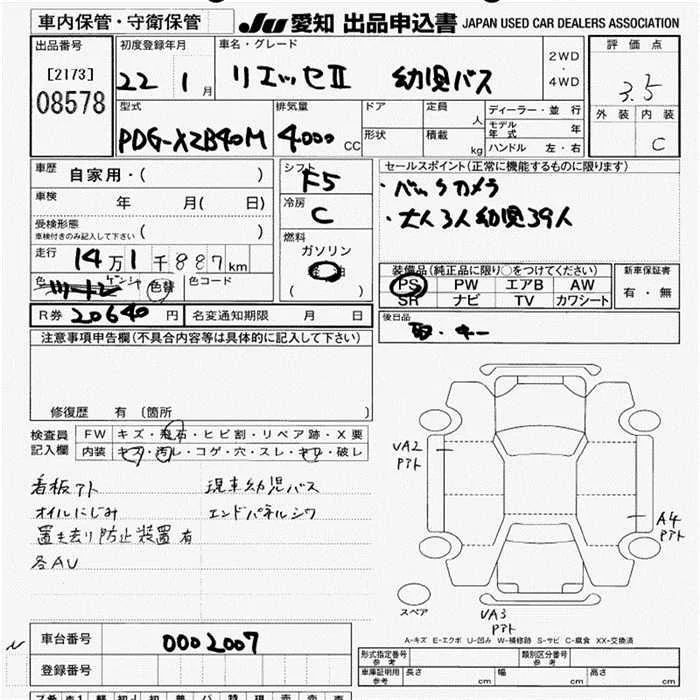 車内保管・守衛保管 JU 愛知 出品申込書 JAPAN USED CAR DEALERS ASSOCIATION
出品番号 初度登録年月 車名・グレード 評価点
[2173] 22 1 月 リエッセⅡ 幼児バス 2WD・4WD 3.5
08578 外装 内装
型式 排気量 ドア 定員 人 ディーラー・並行
PDG-XZB40M 4.000 CC 形状 積載 kg モデル年式 年 C
ハンドル 左・右
車歴 自家用・( ) シフト F5 セールスポイント(正常に機能するものに限ります)
車検 年 月( 日) 冷房 C ・バックカメラ
受検形態 車検付きのみ記入して下さい ( ) ・大人3人幼児39人
走行 14万1千887km 燃料 ガソリン
装備品(純正品に限り○をつけてください) 新車保証書
色 色替 色コード ( ) PS PW エアB AW 有・無
SR ナビ TV カワシート
R券 20640 円 名変通知期限 月 日 後日品
取・キー
注意事項申告欄(不具合内容等は具体的に記入して下さい)
修復歴 有 (箇所 )
検査員 FW キズ・飛石・ヒビ割・リペア跡・X要
記入欄 内装 キズ・汚レ・コゲ・穴・スレ・キレ・破レ
看板アト 現車幼児バス
オイルにじみ エンドパネルシワ
置き去り防止装置有
各AU
UA2 アト
A4 アト
スペア UA3 アト
A-キズ E-エクボ U-凹み W-補修跡 S-サビ C-腐食 XX-交換済
車台番号 0002007
登録番号
型式指定番号 参考 類別区分番号 参考
車庫証明用 参考 長さ cm 幅 cm 高さ cm